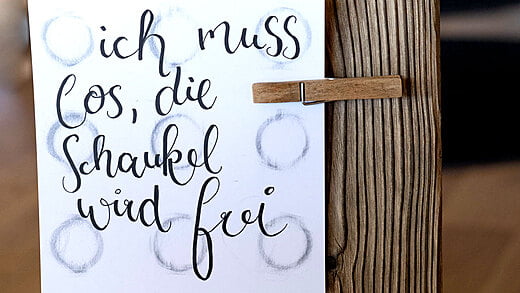 ich muss
los, die
Schaukel
wird frei